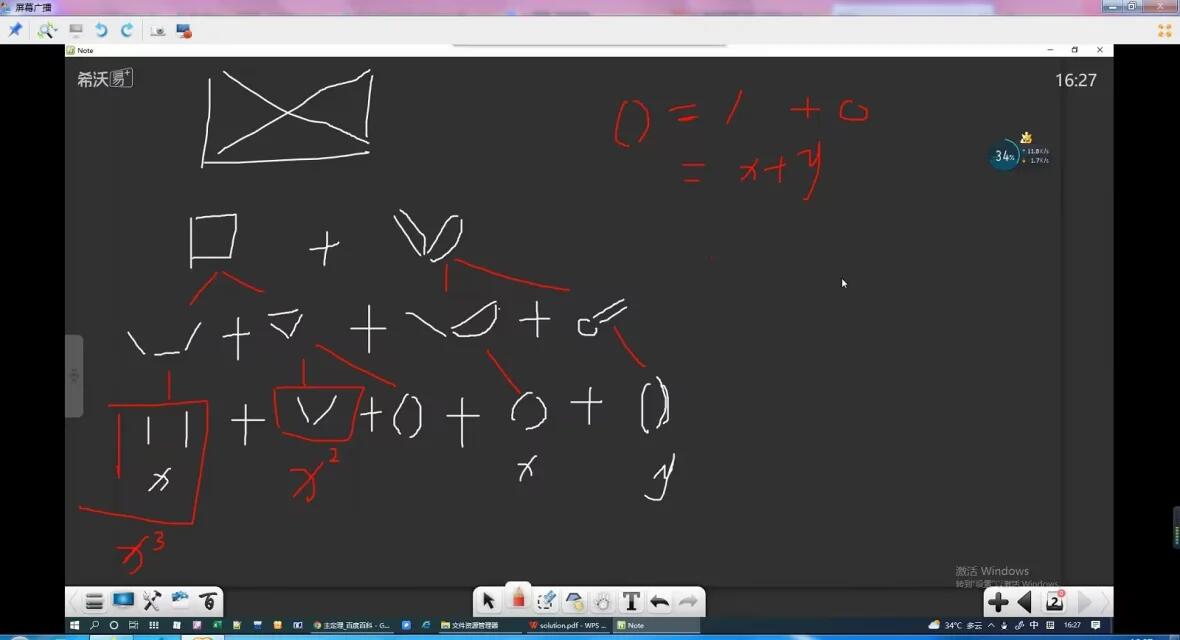 屏幕广播
Note
希沃易+
16:27
0 = 1 + 0
= x + y
34%
↑ 11.8K/s
↓ 1.7K/s
+
+ + +
+ + + +
x x² x y
x³
激活 Windows
转到"设置"以激活 Windows。
2
主定理_百度百科 - G...
文件资源管理器
solution.pdf - WPS ...
Note
34°C 多云
中
16:27